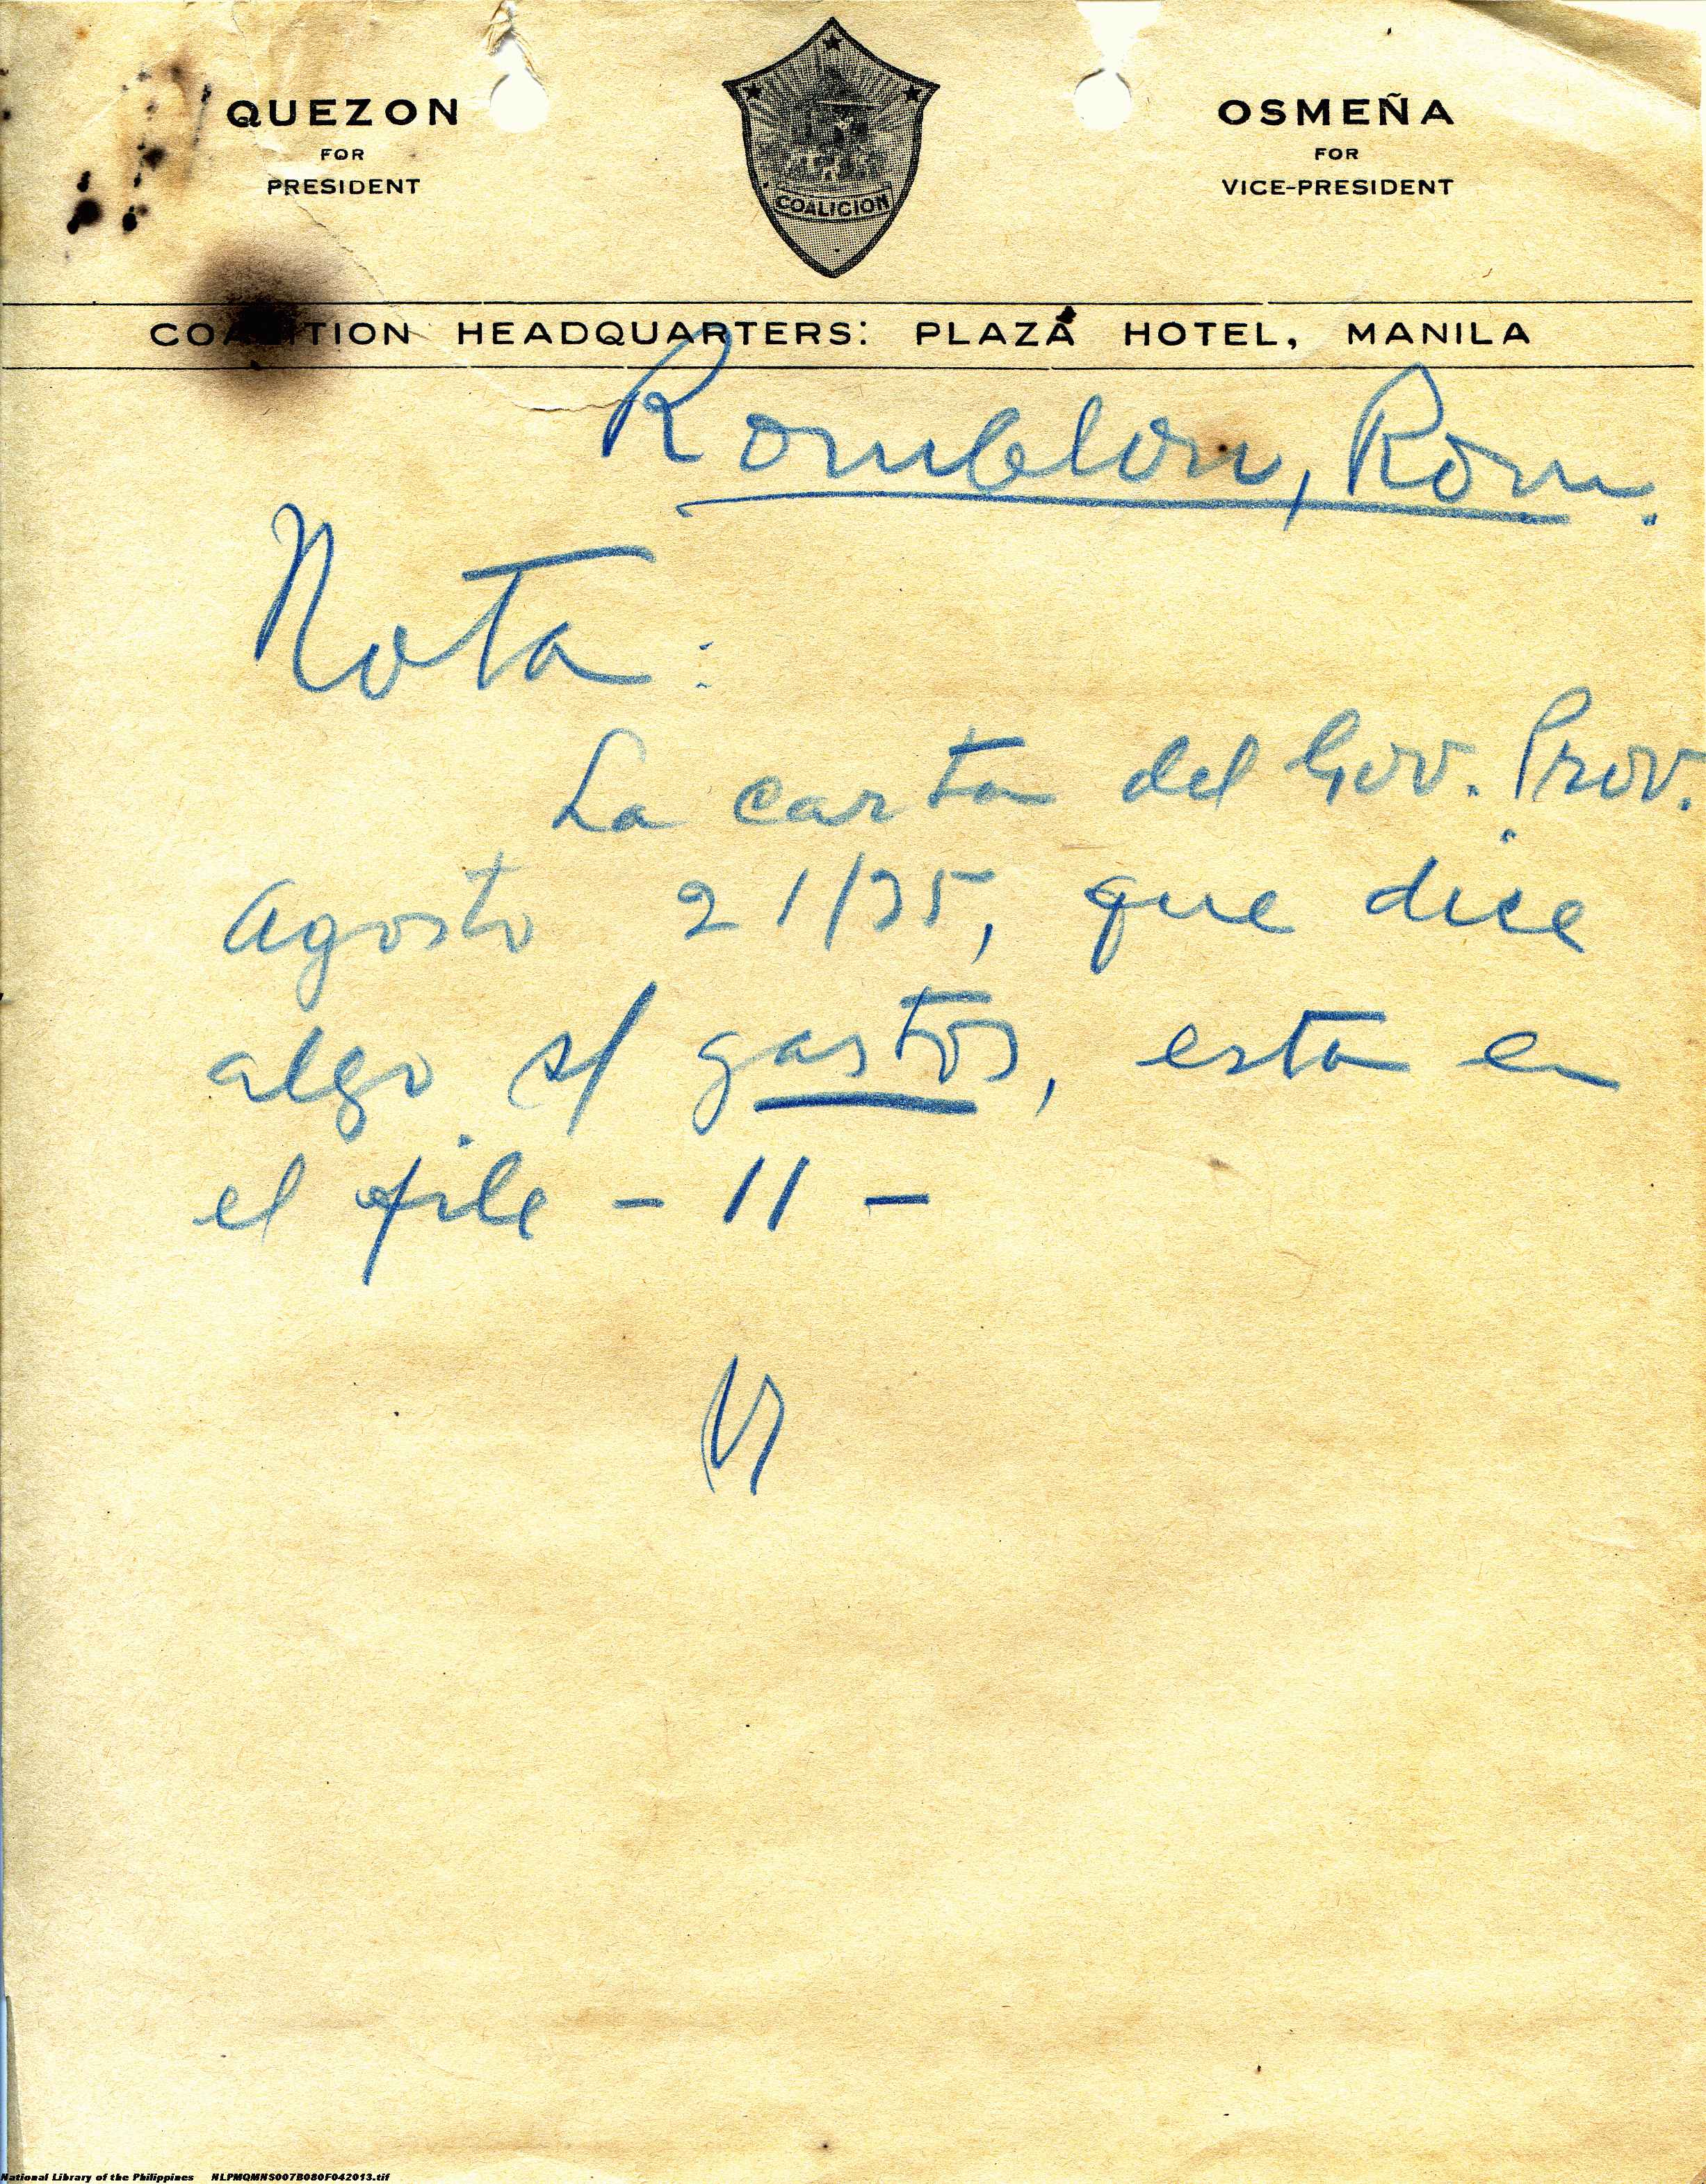 QUEZON
FOR
PRESIDENT
COALICION
OSMEÑA
FOR
VICE-PRESIDENT
COALITION HEADQUARTERS: PLAZA HOTEL, MANILA
Romblon, Rom.
Nota:
La carta del Gov. Prov.
Agosto 21/35, que dice
algo s/ gastos, esta en
el file - 11 -
National Library of the Philippines NLPMQMNS007B080F042013.tif